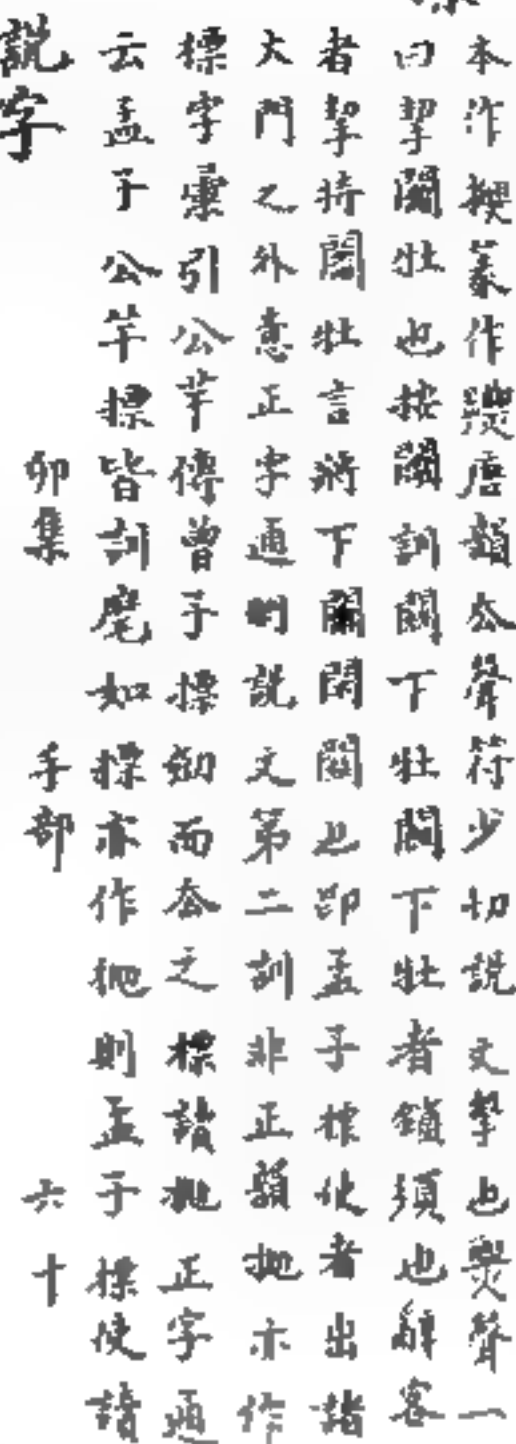 本作㩠篆作𢶏唐韻去聲符少切說文擊也㶾聲一
曰挈闑牡也按闑訓關下牡闑下牡者鎖須也辭客
者挈持關牡言將下關閉關也即孟子摽使者出諸
大門之外意正字通刪說文第二訓非正韻抛亦作
摽字彙引公羊傳曾子摽劒而去之摽讀抛正字通
云孟子公羊摽皆訓麾如摽亦作抛則孟子摽使讀
說字
卯集
手部
六十